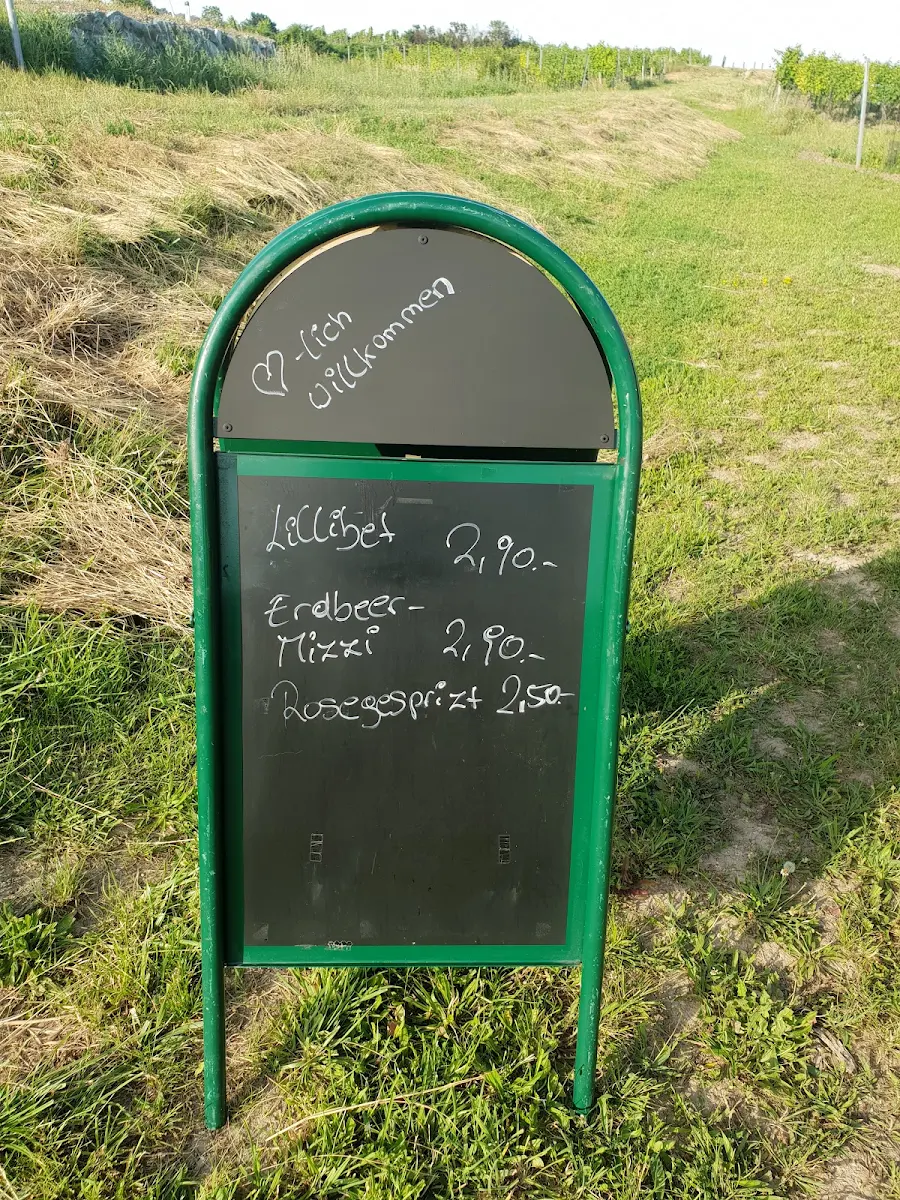 ♡-lich
willkommen
Lillibet 2,90.-
Erdbeer-
Mizzi 2,90.-
Rosegesprizt 2,50.-